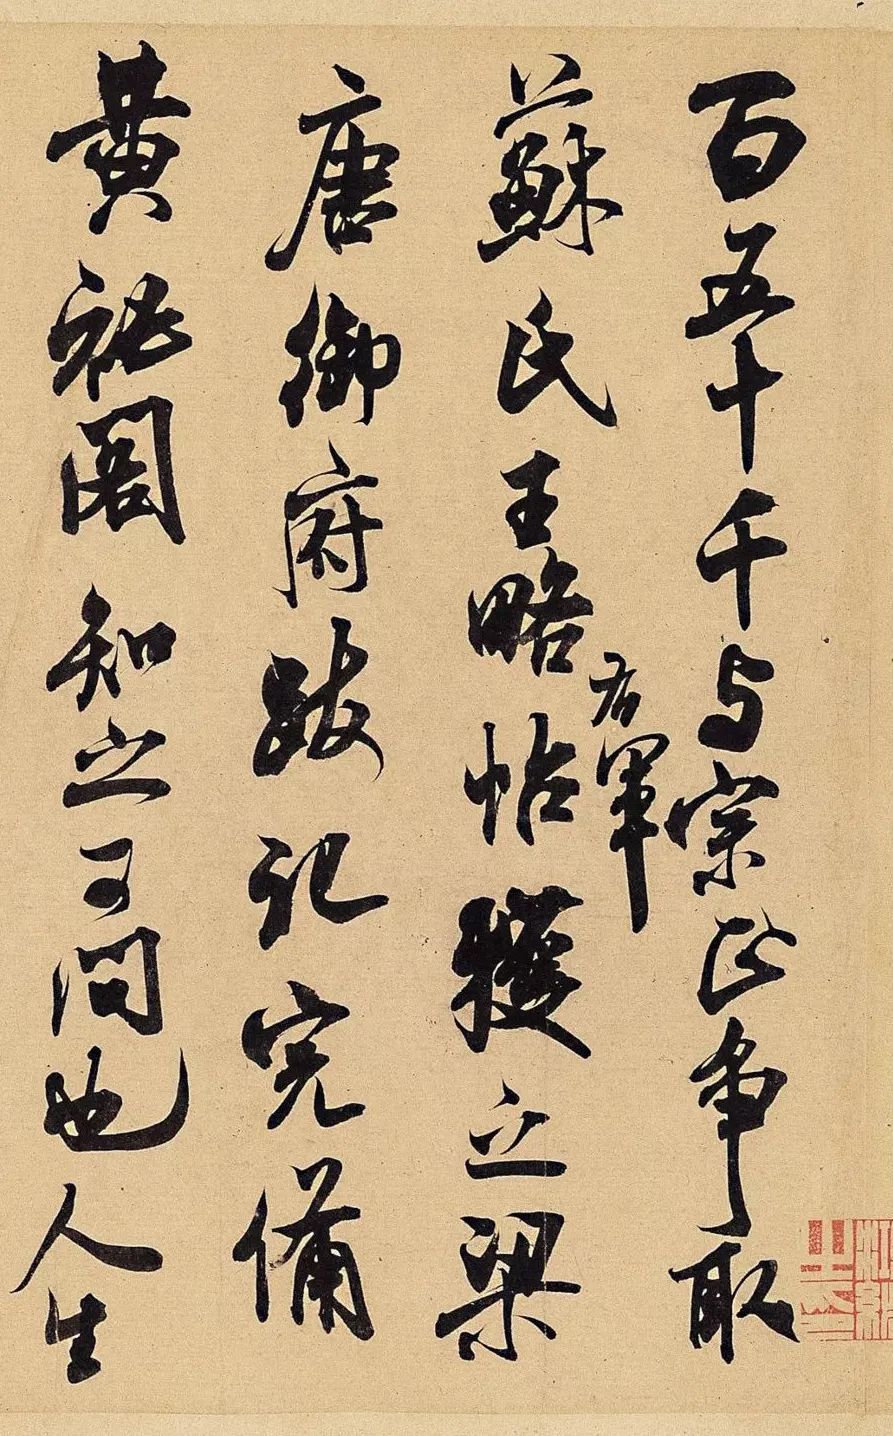 百五十千与宗正争取
蘇氏王略帖獲之梁
右軍
唐御府跋記完備
黄祕閣知之可問也人生